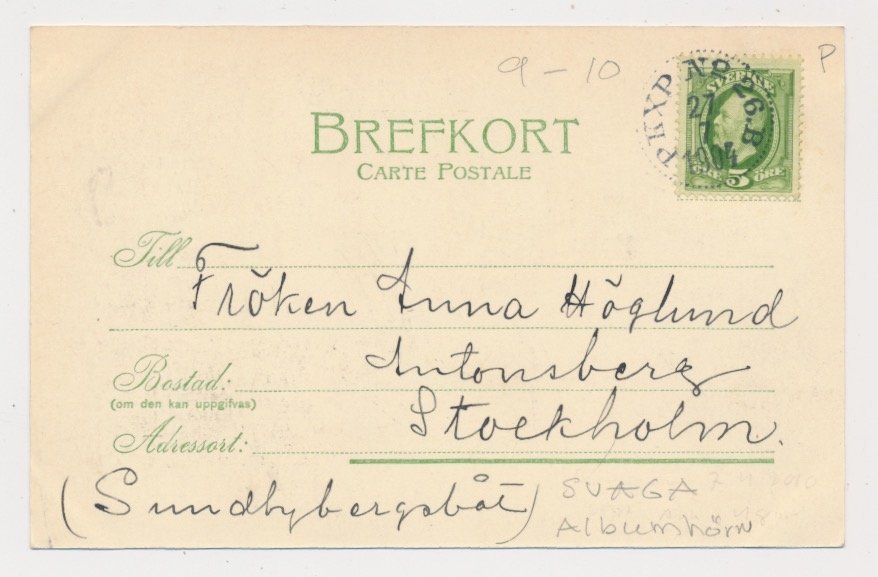 9 – 10
P
PKXP Nº 26.B
27
7
1904
SVERIGE
ÖRE 5 ÖRE
BREFKORT
CARTE POSTALE
Till
Fröken Anna Höglund
Bostad: Antonsberg
(om den kan uppgifvas)
Adressort: Stockholm.
(Sundbybergsbåt)
SVAGA
Albumhörn